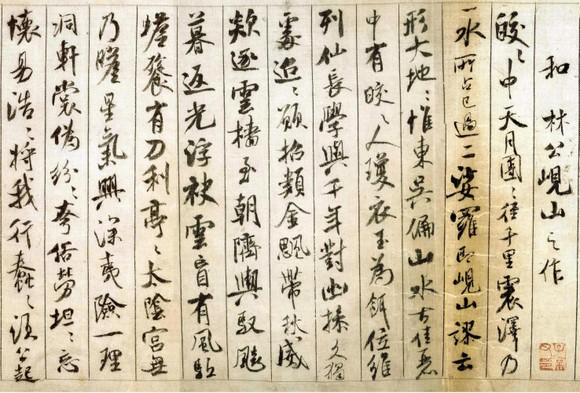 和林公峴山之作
皎〻中天月團〻徑千里震澤乃
一水所占已過二娑羅即峴山謬云
形大地〻惟東吳偏山水古佳麗
中有皎〻人瓊衣玉為餌位維
列仙長學與千年對幽操久獨
處迢〻願招類金颸帶秋威
欻逐雲檣至朝隮輿馭飈
暮返光浮袂雲盲有風驅
蟾餮有刀利亭〻太陰宮無
乃瞻星氣興深夷險一理
洞軒裳偽紛〻夸俗勞坦〻忘
懷易浩〻將我行蠢〻須公起